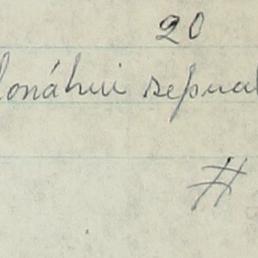 20
lonáhui sepual
#